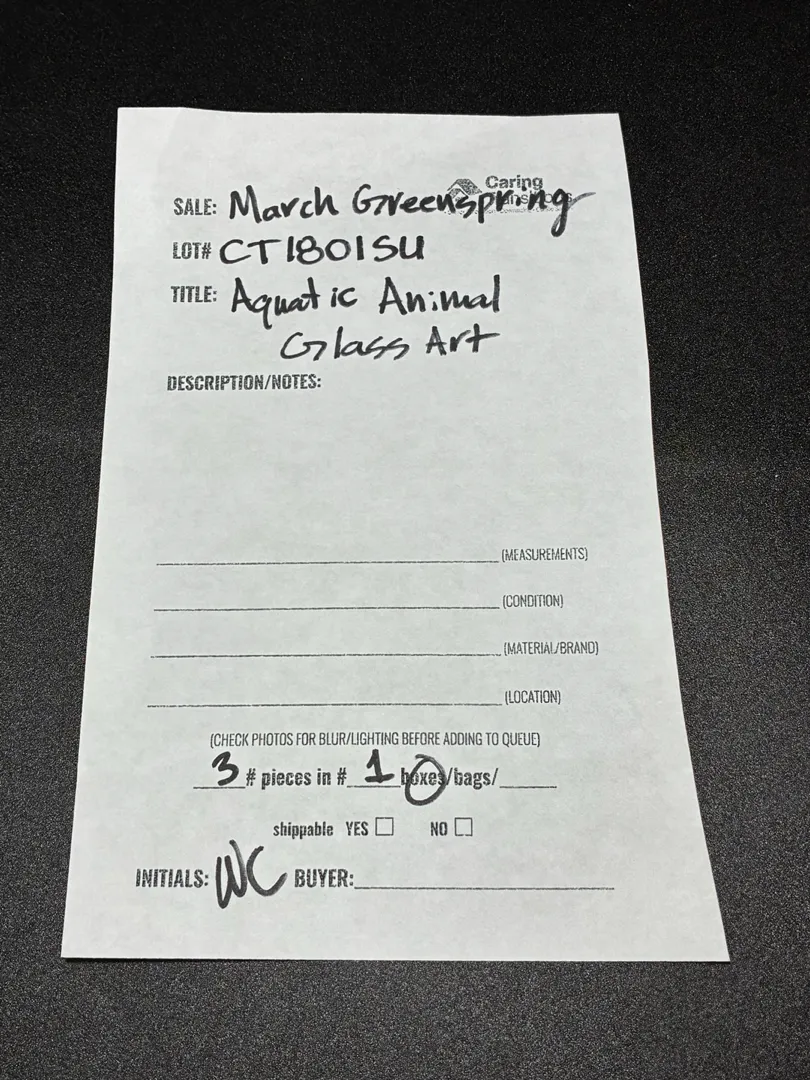 Caring
SALE: March Greenspring
LOT# CT1801SU
TITLE: Aquatic Animal
Glass Art
DESCRIPTION/NOTES:
(MEASUREMENTS)
(CONDITION)
(MATERIAL/BRAND)
(LOCATION)
(CHECK PHOTOS FOR BLUR/LIGHTING BEFORE ADDING TO QUEUE)
3 # pieces in # 1 boxes/bags/
shippable YES NO
INITIALS: WC BUYER: